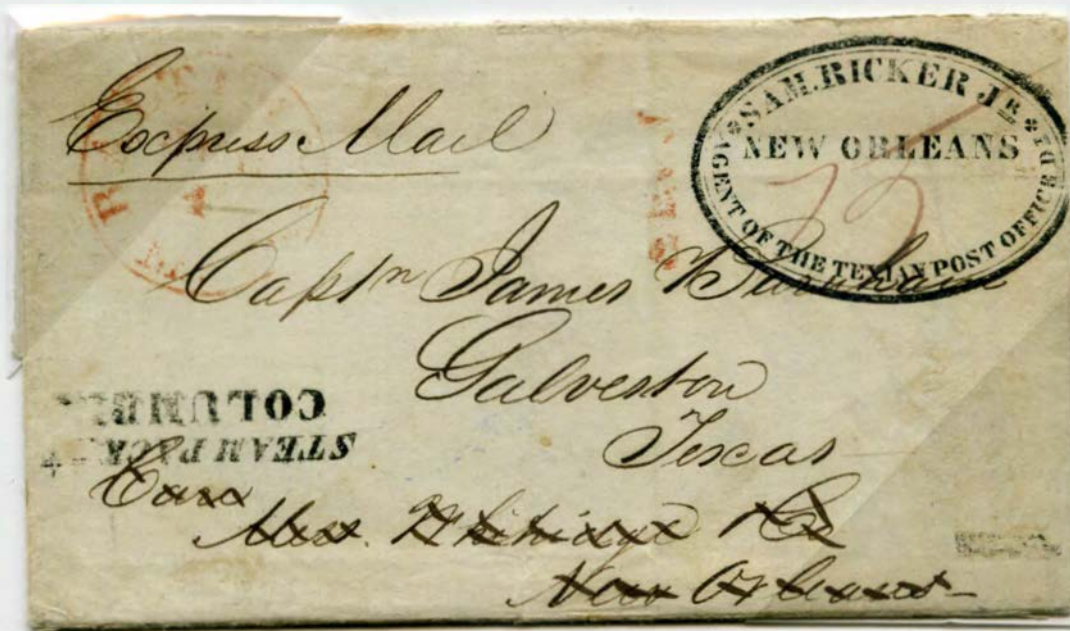 Express Mail
SAM. RICKER JR.
NEW ORLEANS
AGENT OF THE TEXIAN POST OFFICE DPT
75
Captn James
Galveston
Texas
STEAM PACKET
COLUMBIA
Care
Mess. &
New Orleans